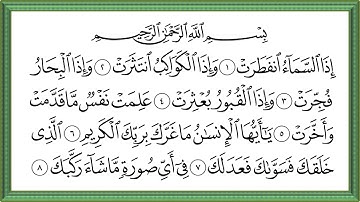 بِسْمِ ٱللَّهِ ٱلرَّحْمَٰنِ ٱلرَّحِيمِ
إِذَا ٱلسَّمَآءُ ٱنفَطَرَتْ ١ وَإِذَا ٱلْكَوَاكِبُ ٱنتَثَرَتْ ٢ وَإِذَا ٱلْبِحَارُ
فُجِّرَتْ ٣ وَإِذَا ٱلْقُبُورُ بُعْثِرَتْ ٤ عَلِمَتْ نَفْسٌ مَّا قَدَّمَتْ
وَأَخَّرَتْ ٥ يَٰٓأَيُّهَا ٱلْإِنسَٰنُ مَا غَرَّكَ بِرَبِّكَ ٱلْكَرِيمِ ٦ ٱلَّذِى
خَلَقَكَ فَسَوَّىٰكَ فَعَدَلَكَ ٧ فِىٓ أَىِّ صُورَةٍ مَّا شَآءَ رَكَّبَكَ ٨